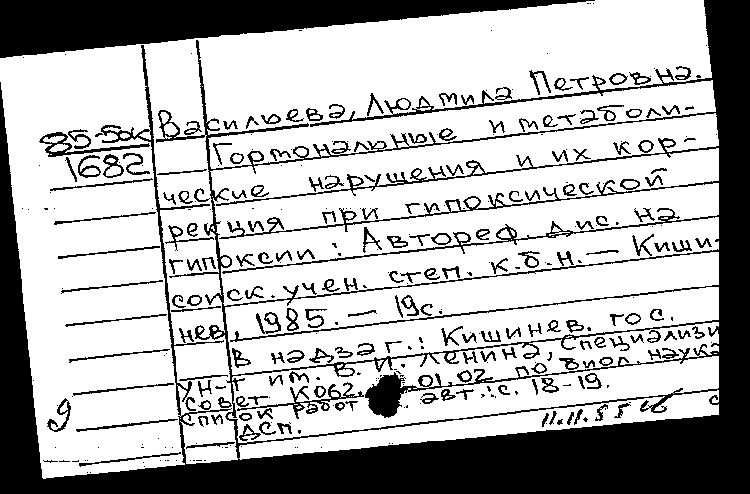 Васильева, Людмила Петровна.
85-5ок
1682
Гормональные и метаболи-
ческие нарушения и их кор-
рекция при гипоксической
гипоксии : Автореф. дис. на
соиск. учен. степ. к.б.н. — Киши-
нев, 1985. — 19с.
В надзаг.: Кишинев. гос.
ун-т им. В. И. Ленина, Специализи
совет К062. 01.02 по биол. наука
список работ авт.: с. 18-19.
ДСП.
9
11.11.85